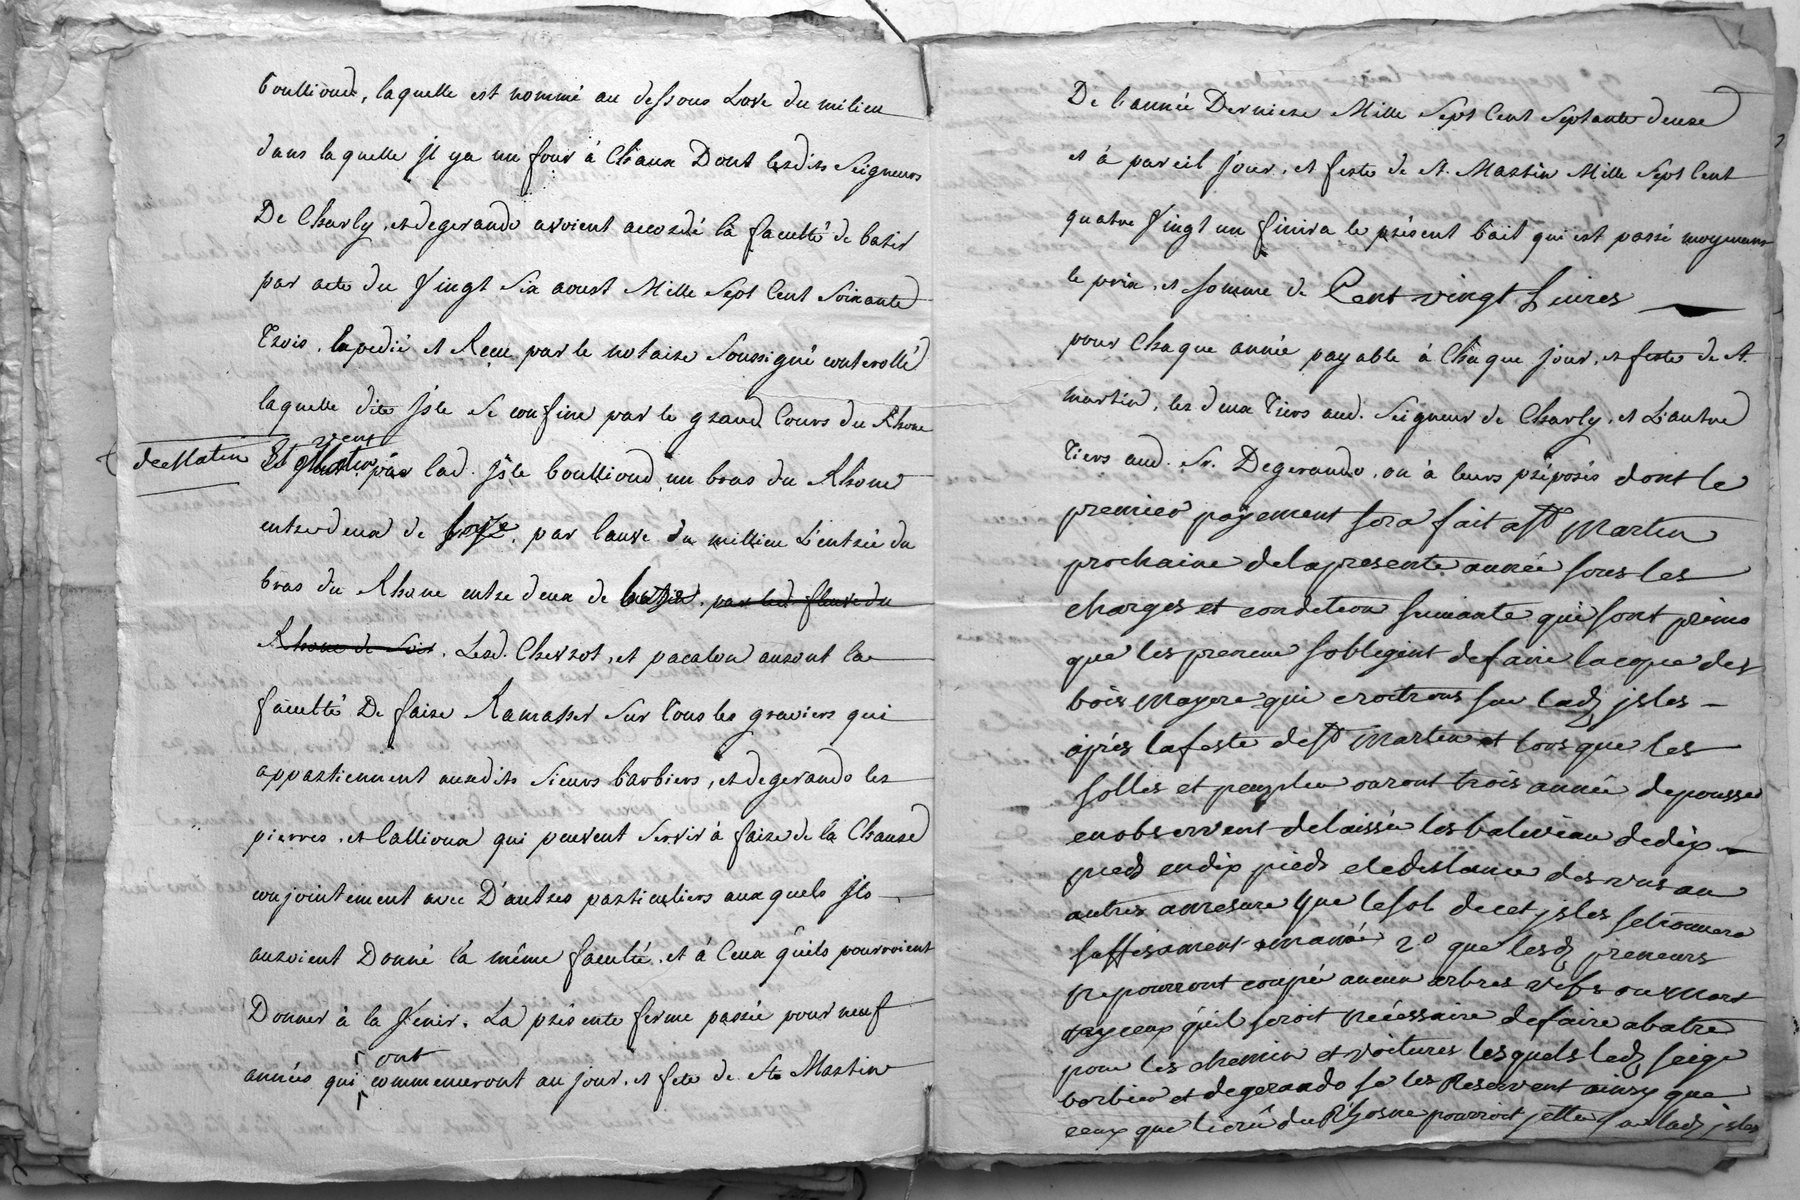 boullioud, laquelle est nommé au dessous Love du milieu
dans laquelle jl ya un four à Chaux Dont lesdits Seigneurs
De Charly, et degerando avoient accordé la faculté de batir
par acte du Vingt Six aoust Mille Sept Cent Soixante
Trois, Expedié et Recu par le notaire Soussigné controllé
laquelle dite jsle Se confine par le grand Cours du Rhone
vent
de Matin Et par lad. jsle boullioud, un bras du Rhone
entredeux de par lauve du millieu L'entrée du
bras du Rhone entre deux de par led. fleuve du
Rhone de Soir. Lesd. Chervot, et pacalon auront la
faculté De faire Ramasser Sur tous les graviers qui
appartiennent auxdits Sieurs barbiers, et degerando les
pierres, et Callioux qui peuvent Servir à faire de la Chaux
conjointement avec D'autres particuliers auxquels jls
auroient Donné la même faculté, et à Ceux qu'ils pourroient
Donner à la Venir. La présente ferme passée pour neuf
ont
années qui commenceront au jour, et fete de St. Martin
De l'année Derniere Mille Sept Cent Septante deuze
et à pareil jour, et feste de St. Martin Mille Sept Cent
quatre Vingt un finira le présent bail qui est passé moyennant
le prix, et Somme de Cent vingt Livres
pour Chaque année payable à Chaque jour, et feste de St.
martin, les deux Tiers aud. Seigneur de Charly, et L'autre
Tiers aud. Sr. Degerando, ou à leurs préposés dont le
premier payement sera fait a St Martin
prochaine de la presente année sous les
charges et condition suivante qui sont primo
que les preneur soblegint de faire la copie des
bois Mayere qui croitrons sur lad jsles
après la feste de St Martin et lors que les
solles et peuplier auront trois année de pousse
en observent de laisser les baliveau de dix
pieds en dix pieds de distance des uns au
autres amesure que le sol de cet jsles se trouvera
suffisament 2o que lesd preneurs
ne pourront coupée aucun arbres vifs ou mort
ceux qu'il seroit nécéssaire de faire abatre
pour les chemin et voitures les quels led seigr
barbier et degerando se les Reservent ainsy que
ceux que lécrû du Rhosne pourroit jetter sur lad jsles